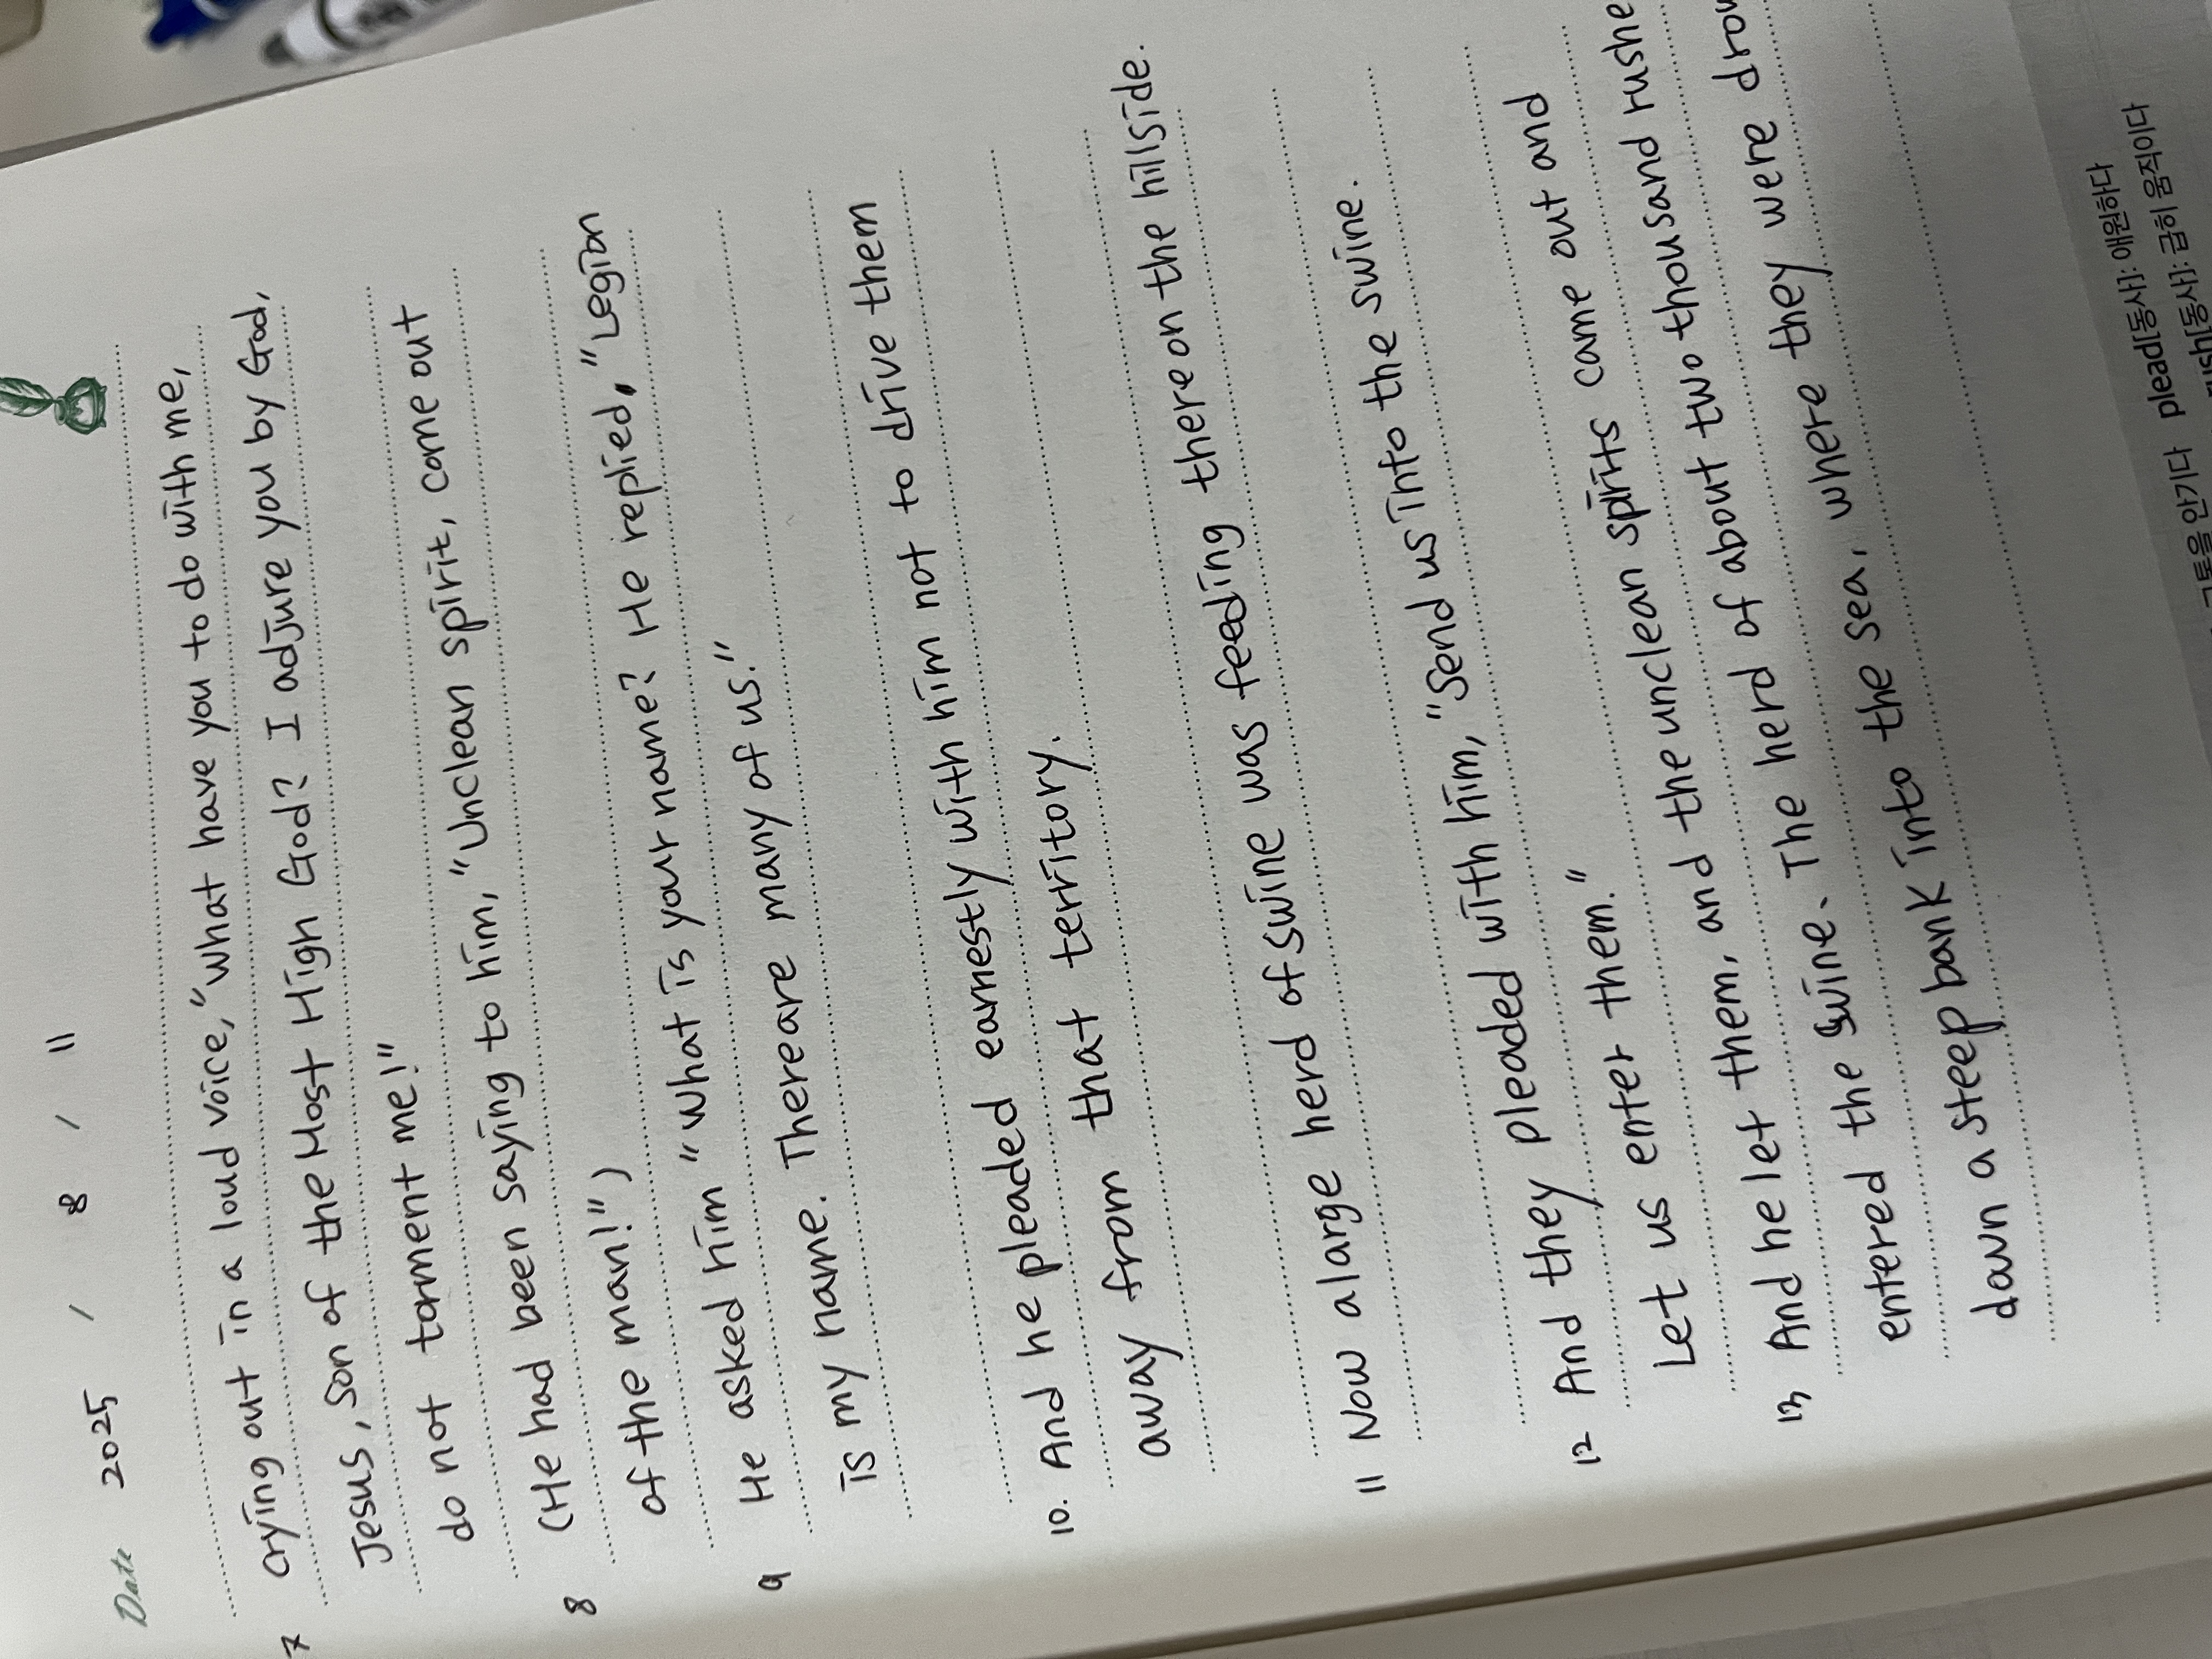 Date 2025 / 8 / 11
7 crying out in a loud voice, "What have you to do with me,
Jesus, son of the Most High God? I adjure you by God,
do not torment me!"
8 (He had been saying to him, "Unclean spirit, come out
of the man!")
9 He asked him "What is your name? He replied, "Legion
is my name. There are many of us."
10. And he pleaded earnestly with him not to drive them
away from that territory.
11 Now a large herd of swine was feeding there on the hillside.
12 And they pleaded with him, "Send us into the swine.
Let us enter them."
13 And he let them, and the unclean spirits came out and
entered the swine. The herd of about two thousand rushe
down a steep bank into the sea, where they were
안기다 plead[동사]: 애원하다
[동사]: 급히 움직이다